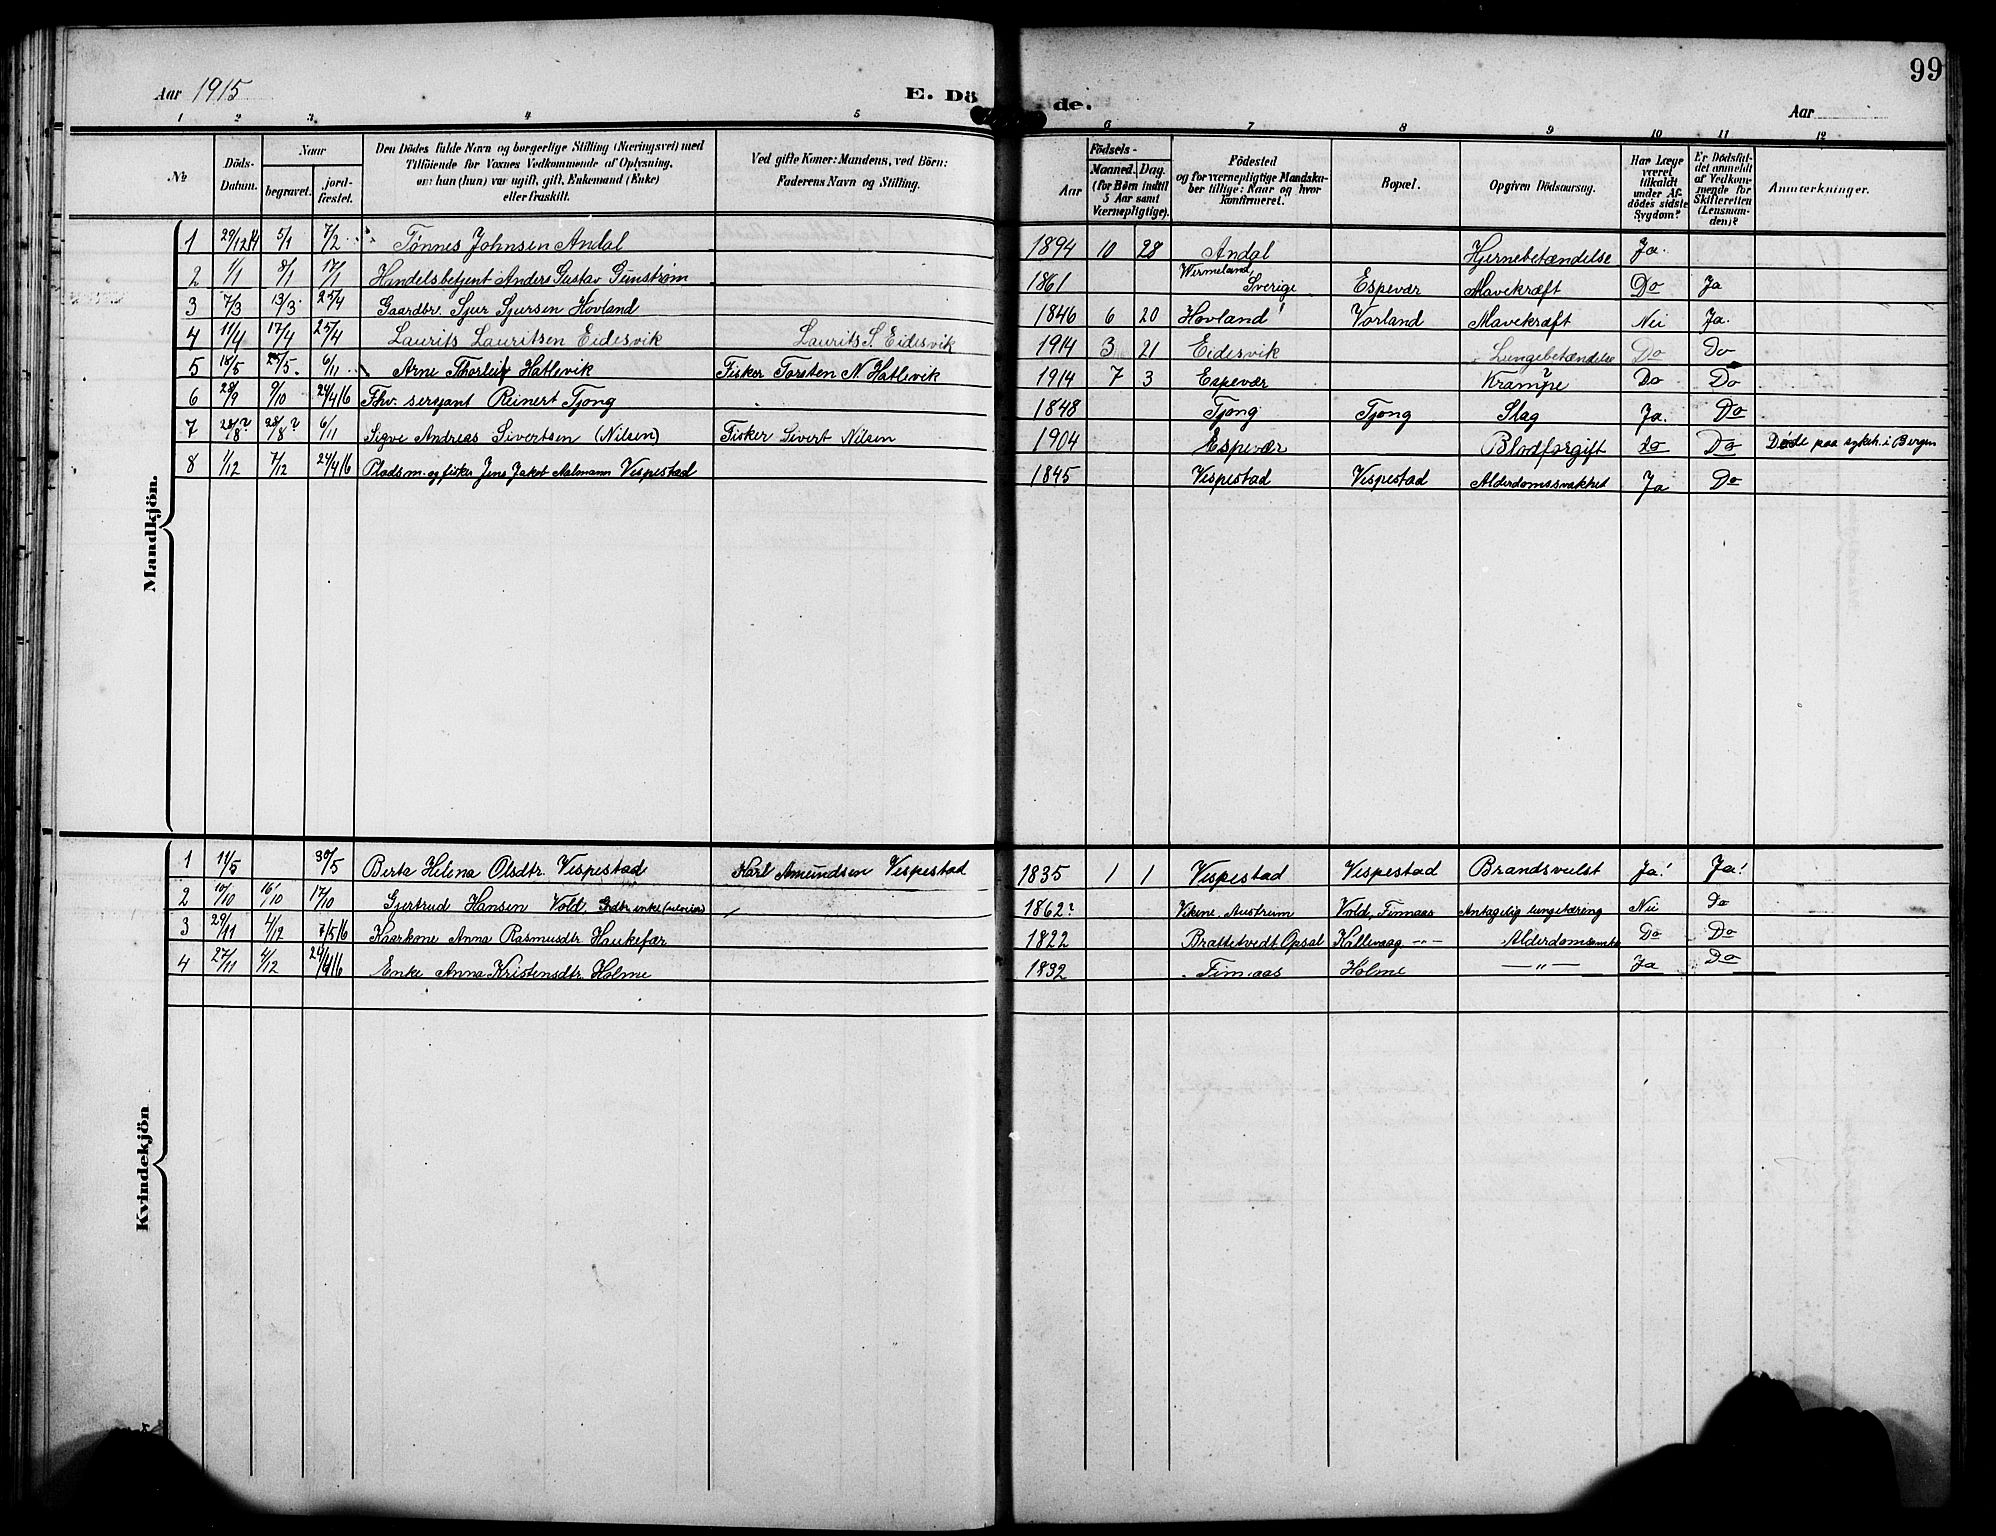 99
Aar 1915
E. Dö
de.
Aar
1 2 3. 4 5 6 7 8 9 10 11 12
№
Döds-Datum.
Naar
begravet.
jord-fæstet.
Den Dödes fulde Navn og borgerlige Stilling (Næringsvei) med
Tilföiende for Voxnes Vedkommende af Oplysning,
om hun (hun) var ugift, gift, Enkemand (Enke)
eller fraskilt.
Ved gifte Koner: Mandens, ved Börn:
Faderens Navn og Stilling.
Födsels-
Aar
Maaned.
Dag.
(for Börn indtil
5 Aar samt
Værnepligtige).
Födested
og for værnepligtige Mandska-
ber tillige: Naar og hvor
konfirmeret.
Bopæl.
Opgiven Dödsaarsag.
Har Læge
været
tilkaldt
under Af-
dödes sidste
Sygdom?
Er Dödsfal-
det anmeldt
af Vedkom-
mende for
Skifteretten
(Lensman-
den)?
Anmærkninger.
Mandkjön.
1 29/12 14 5/1 7/2 Tønnes Johnsen Andal 1894 10 28 Andal Hjernebetændelse Ja.
2 1/1 8/1 17/1 Handelsbetjent Anders Gustav Gunstrøm 1861 Wermeland, Sverige Espevær Mavekræft Do Ja
3 7/3 13/3 25/4 Gaardbr. Sjur Sjursen Hovland 1846 6 20 Hovland Vorland Mavekræft Nei Ja.
4 11/4 17/4 25/4 Laurits Lauritsen Eidesvik Laurits S. Eidesvik 1914 3 21 Eidesvik Lungebetændelse Do Do
5 18/5 25/5. 6/11 Arne Thorleif Hatlevik Fisker Torsten N. Hatlevik 1914 7 3 Espevær Krampe Do Do
6 28/9 9/10 24/4 16 Fhv. sersjant Reinert Tjong 1848 Tjong Tjong Slag Ja. Do
7 28/8? 28/8? 6/11 Sigve Andreas Sivertsen (Nilsen) Fisker Sivert Nilsen 1904 Espevær Blodforgift Do Do Døde paa sykeh. i Bergen
8 1/12 7/12 24/4 16 Pladsm. og fisker Jens Jakob Aalmann Vespestad 1845 Vespestad Vespestad Alderdomssvakhed Ja Do
Kvindekjön
1 11/5 30/5 Berta Helena Olsdtr. Vespestad Karl Amundsen Vespestad 1835 1 1 Vespestad Vespestad Brandsvulst Ja! Ja!
2 10/10 16/10 17/10 Gjertrud Hansen Vold, Gdbr. enke 1862? Vikene, Austrem Vold, Finnaas Antagelig lungetæring Nei Do
3 29/11 4/12 7/5 16 Kaarkone Anna Rasmusdtr. Haukefær 1822 Brattetvedt Opsal Kallevaag -„- Alderdomssvakh Do Do
4 27/11 4/12 24/4 16 Enke Anna Kristensdtr. Holme 1832 Finnaas Holme -„- Ja Do